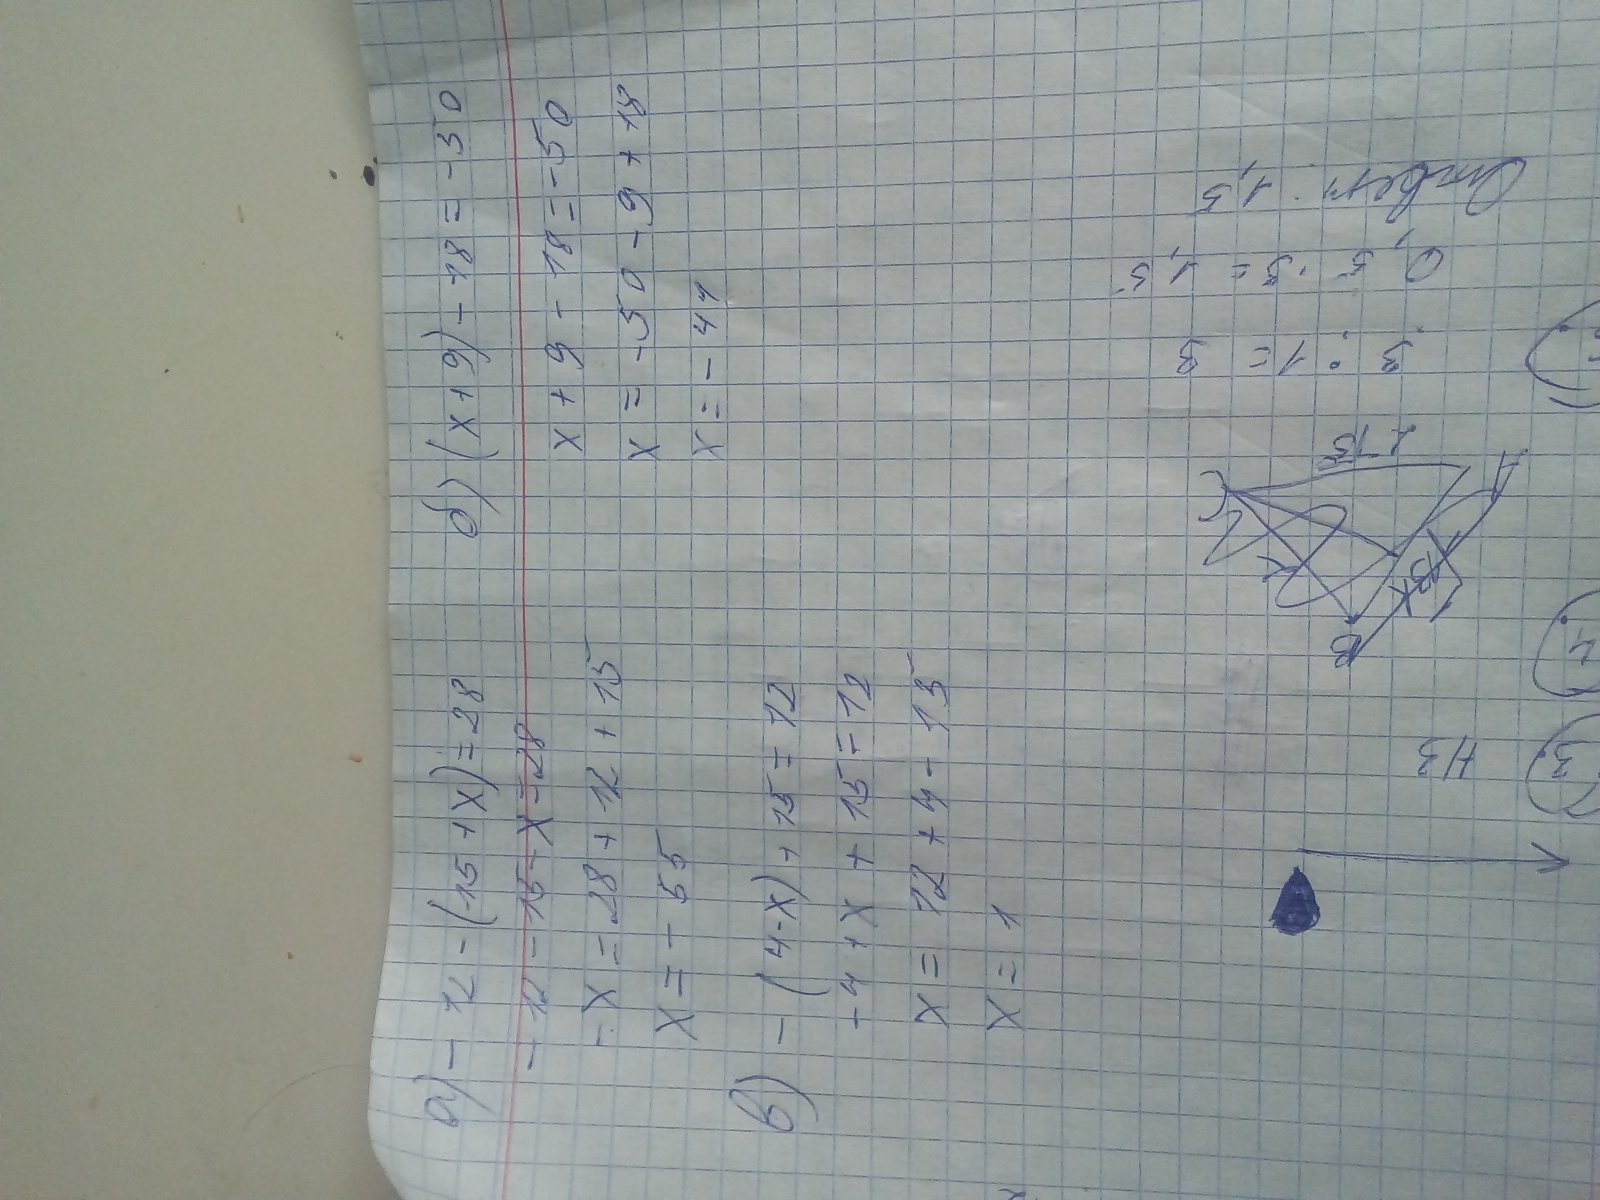 а) - 12 - (15 + x) = 28
- 12 - 15 - x = 28
- x = 28 + 12 + 15
x = - 55
б) (x + 9) - 18 = - 50
x + 9 - 18 = - 50
x = - 50 - 9 + 18
x = - 41
в) - (4 - x) + 15 = 12
- 4 + x + 15 = 12
x = 12 + 4 - 15
x = 1
3
НЗ
4
B
3 : 1 = 3
0,5 · 3 = 1,5
Ответ: 1,5